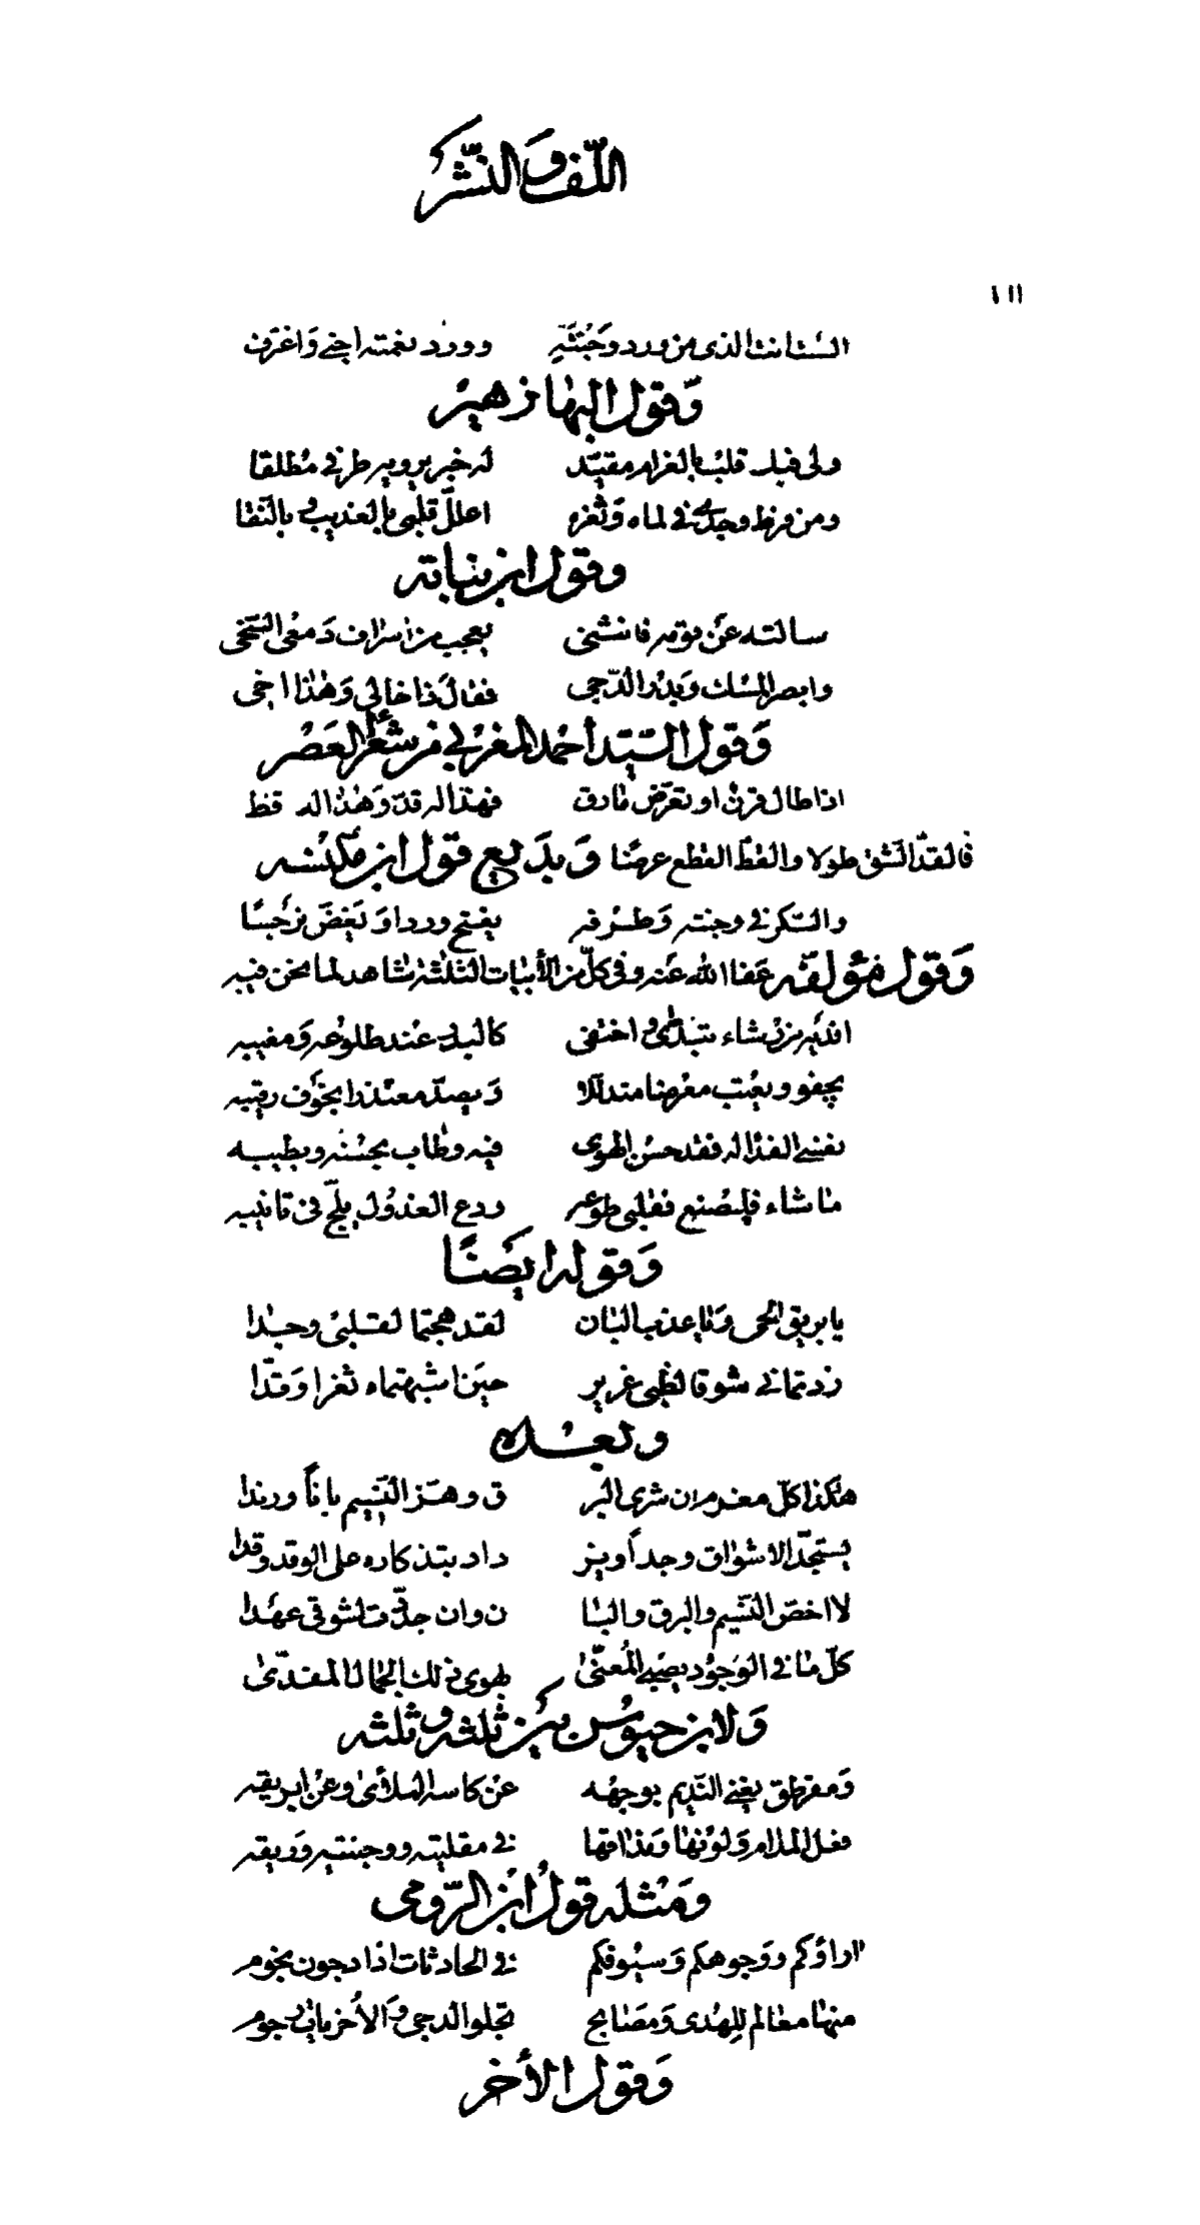 اللّف وَالنّشر
١١١
الست انت الذي من ورد وَجْنتَيهِ وورد نعمته اجني وَاغترف
وَقول البهَا زهير
ولي فيه قلب بالغرام مقيّد له خبر يرويه طرفي مُطلقا
ومن فرط وجدي في لماه وَثغره اعلّل قلبي بالعذيب وبالنّقا
وقول ابن نباتة
سالته عَن قومه فانثنى يعجب من اسراف دَمعي السّخي
وابصر المسك وَبدْر الدّجى فقالَ ذا خالي وَهٰذا اخي
وَقول السّيّد أحمد المغربي من شعَراء العَصْر
اذا طال قرن او تعرّض مارق فهذا له قدّ وَهٰذا له قط
فالقدّ الشق طولا والقطّ القطع عرضًا وَبدَيع قول ابن مكنسه
والسّكر في وجنته وَطرْفه يفتح وردا وَيَغضّ نرجسًا
وَقول مؤلفه عَفا الله عَنه وفي كلّ من الأبيات الثلثة شاهد لما نحن فيه
افديه من رشاء تبدّى واختفى كالبدر عند طلوعه وَمغيبه
يجفو ويعتب معرضا متدللا وَيصدّ معتذرا بخوف رقيبه
نفسي الفدا له فقد حسن الهوى فيه وطاب بحسنه وبطيبه
ما شاء فليصنع فقلبي طوعه ودع العذول يلجّ في تانيبه
وَقوله ايضًا
يا بريق الحمى وَيا عذب البان لقد هجتما لقلبي وجدا
زدتماني شوقا لظبي غرير حين اشبهتماه ثغرا وَقدّا
وبعده
هٰكذا كلّ مغرم ان شرى البر ق وهزّ النّسيم باناً ورندا
يستجدّ الاشواق وجداً ويز داد بتذكاره على الوقد وقدا
لا اخصّ النّسيم والبرق والبا ن وان جدّدت لشوقي عهدا
كلّ ما في الوجُود يصبي المُعنّىٰ لهوى ذلك الجمال المفدّىٰ
وَلابن حيوس بين ثلثه وثلثه
وَمقرطق يغني النّديم بوجهه عن كاسه الملأىٰ وعن ابريقه
فعل المدام وَلونها وَمذاقها في مقلتيه ووجنتيه وَريقه
وَمثله قولُ ابن الرّومي
اراؤكم ووَجوهكم وَسيوفكم في الحادثات اذا دجون نجوم
منها معالم للهُدى وَمصَابح تجلو الدجى وَالأخريات رجوم
وَقول الأخر